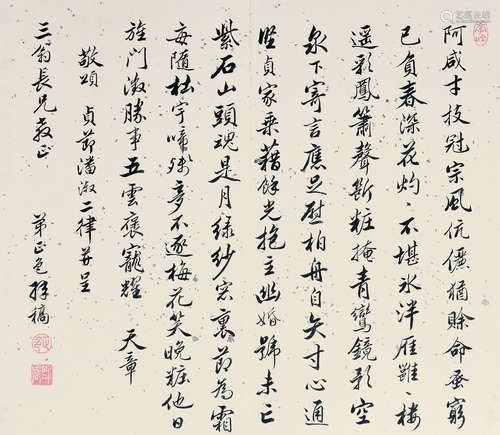 阿咸才技冠宗風伉儷猶賒命蚤窮
已負春深花灼々不堪冰泮雁雝々樓
遥彩鳳簫聲斷粧掩青鸞鏡影空
泉下寄言應足慰柏舟自矢寸心通
堅貞家乘藉餘光抱主幽婚號未亡
紫石山頭魂是月綠紗窓裏節為霜
每隨杜宇啼殘夢不逐梅花笑晚粧他日
旌門徵勝事五雲褒寵耀 天章
敬頌 貞節潘淑二律并呈
三翁長兄教正 弟正色拜稿